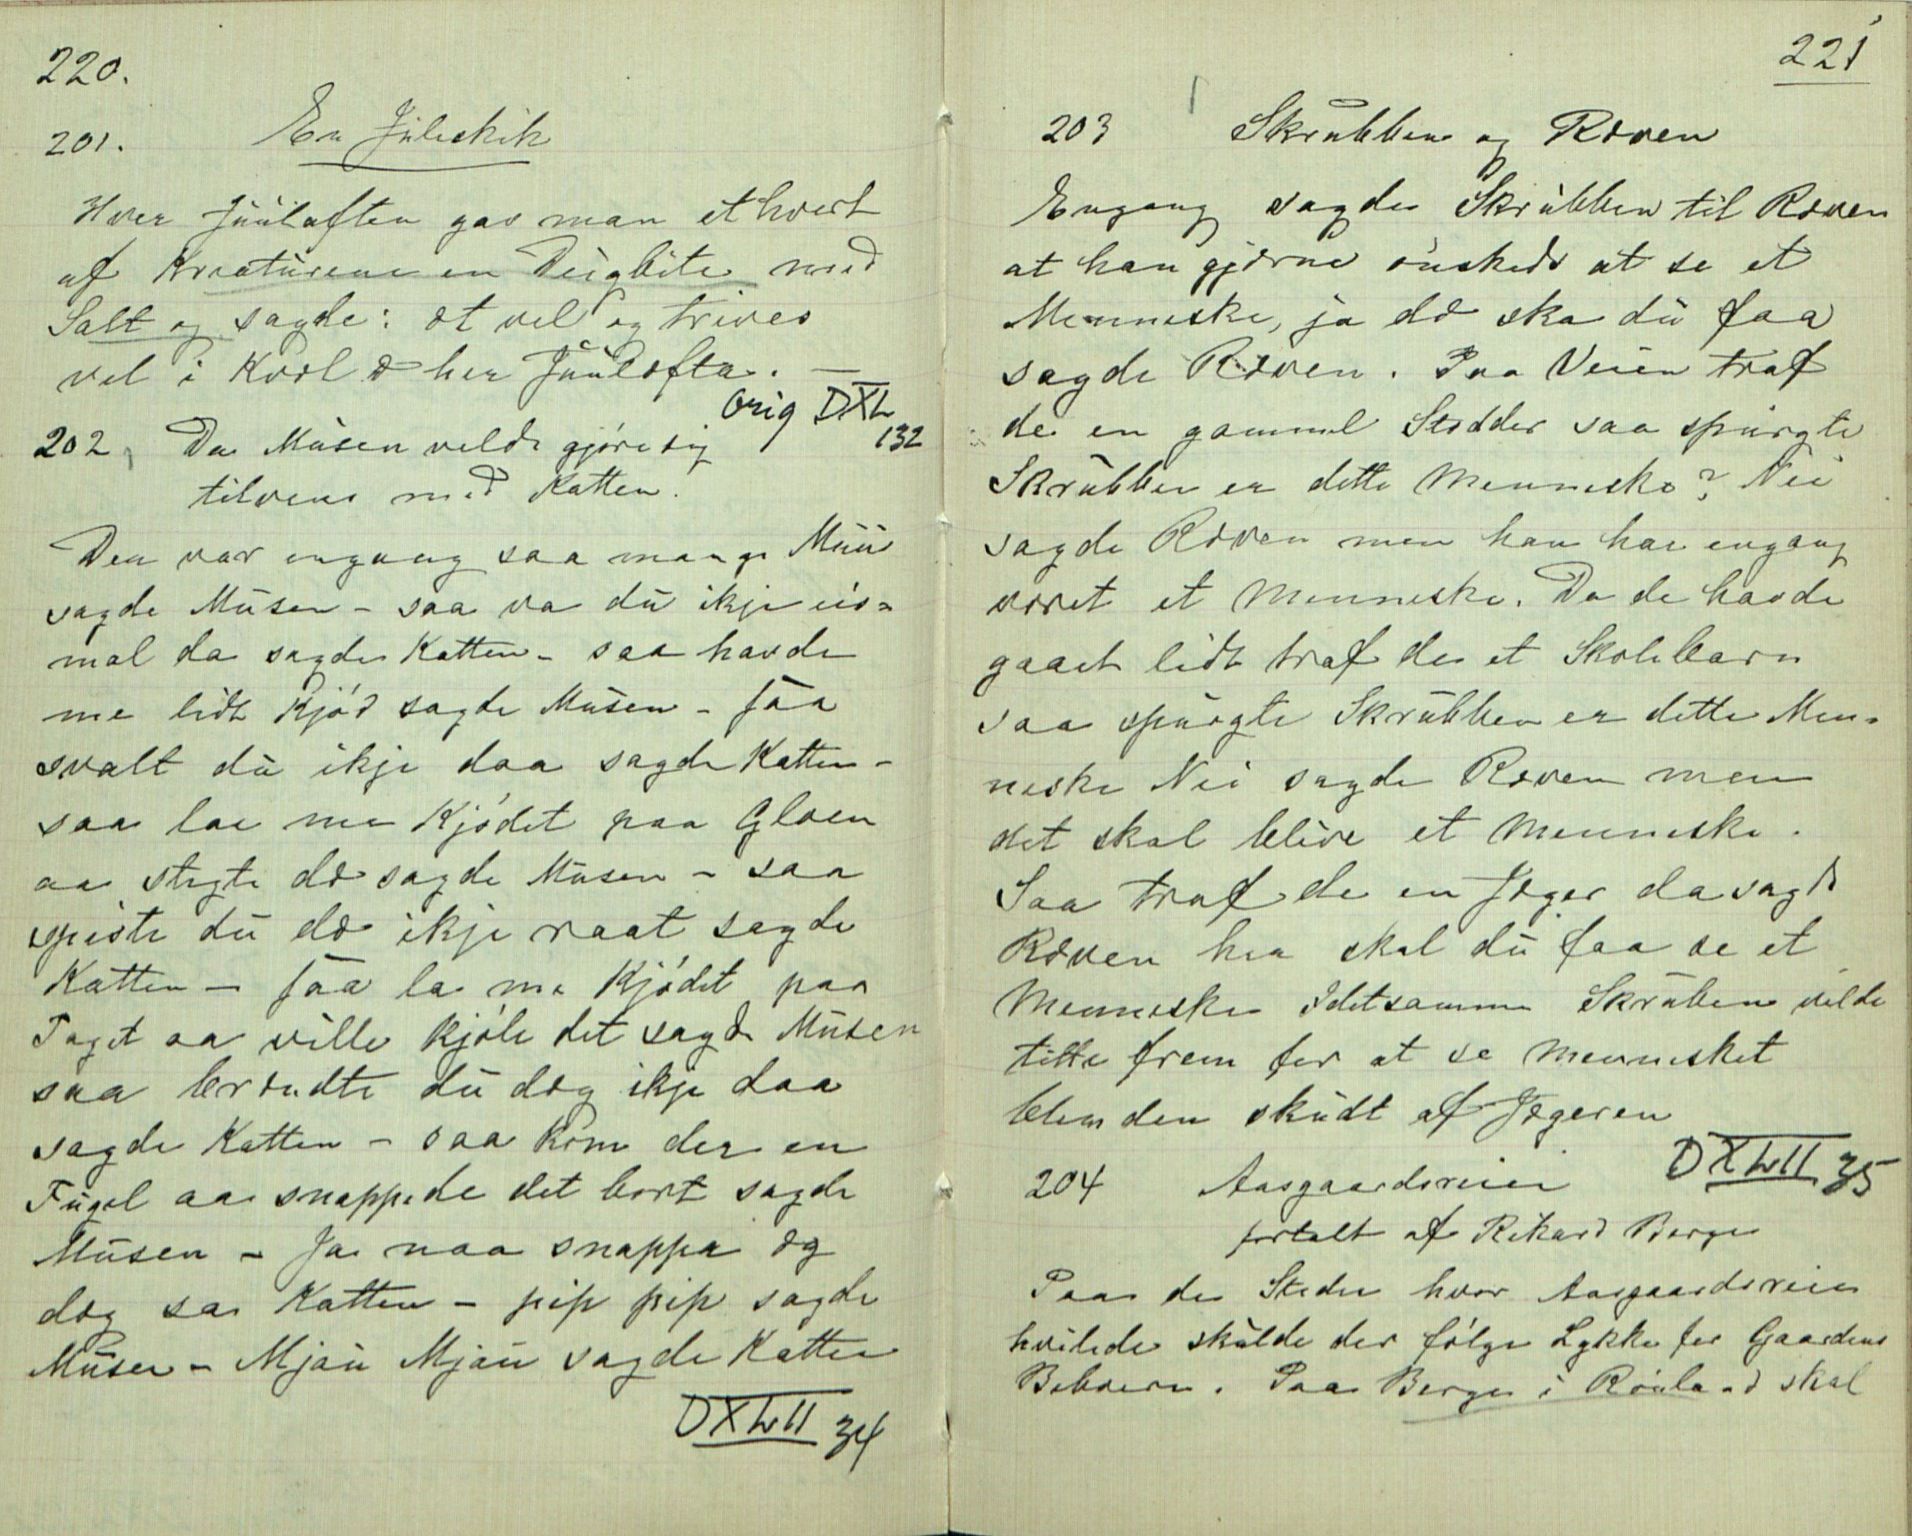 220.
201. En Juleskik
Hver Juulaften gav man ethvert
af Kreaturene en Deigbite med
Salt og sagde: æt vel og trives
vel i Kvæl æ her Juulæfta. —
Orig DXL
132
202, Da Musen vilde gjöre sig
tilvens med Katten.
Den var engang saa mange Muus
sagde Musen - saa va du ikje eis=
mal da sagde Katten - saa havde
me lidt Kjöd sagde Musen - Jaa
svalt du ikje daa sagde Katten -
saa lae me Kjödet paa Gloen
aa stegte dæ sagde Musen - saa
spiste du dæ ikje raat sagde
Katten - Jaa la me Kjödet paa
Taget aa ville kjöle det sagde Musen
saa brændte du dæg ikje daa
sagde Katten - saa kom der en
Fugel aa snappede det bort sagde
Musen - Ja naa snappa æg
dæg sa Katten - pip pip sagde
Musen - Mjau Mjau sagde Katten
DXLII 34
221
203 Skrubben og Ræven
Engang sagde Skrubben til Ræven
at han gjærne önskede at se et
Menneske, ja dæ ska du faa
sagde Ræven. Paa Veien traf
de en gammel Stodder saa spurgte
Skrubben er dette Menneske? Nei
sagde Ræven men han har engang
været et Menneske. Da de havde
gaaet lidt traf de et Skolebarn
saa spurgte Skrubben er dette Men=
neske Nei sagde Ræven men
det skal blive et Menneske.
Saa traf de en Jæger da sagde
Ræven her skal du faa se et
Menneske Idetsamme Skruben vilde
titte frem for at se Mennesket
blev den skudt af Jægeren
DXLII 35
204 Aasgaardsreien
fortalt af Rikard Berge
Paa de Steder hvor Aasgaardsreien
hvilede skulde der fölge Lykke for Gaardens
Beboere. Paa Berge i Rauland skal